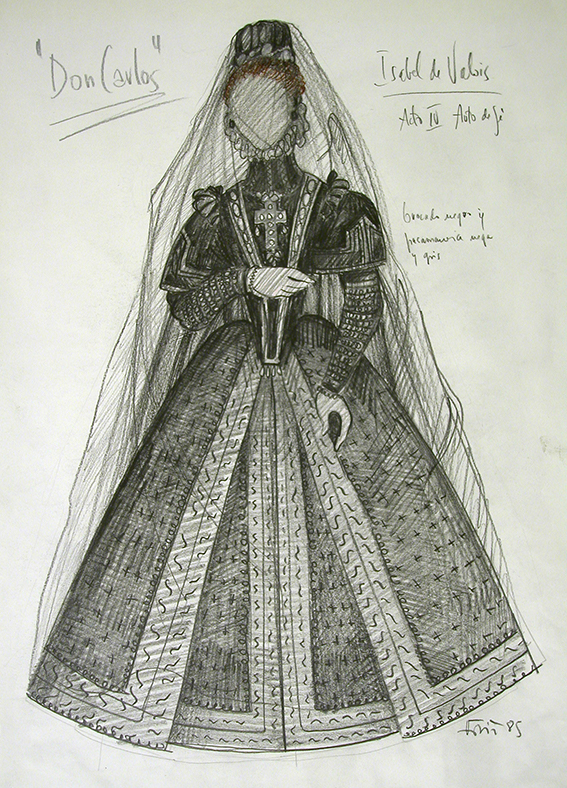 "Don Carlos"
Isabel de Valois
Acto IV Auto de fé
brocado negro y
pasamanería negra
y gris
85